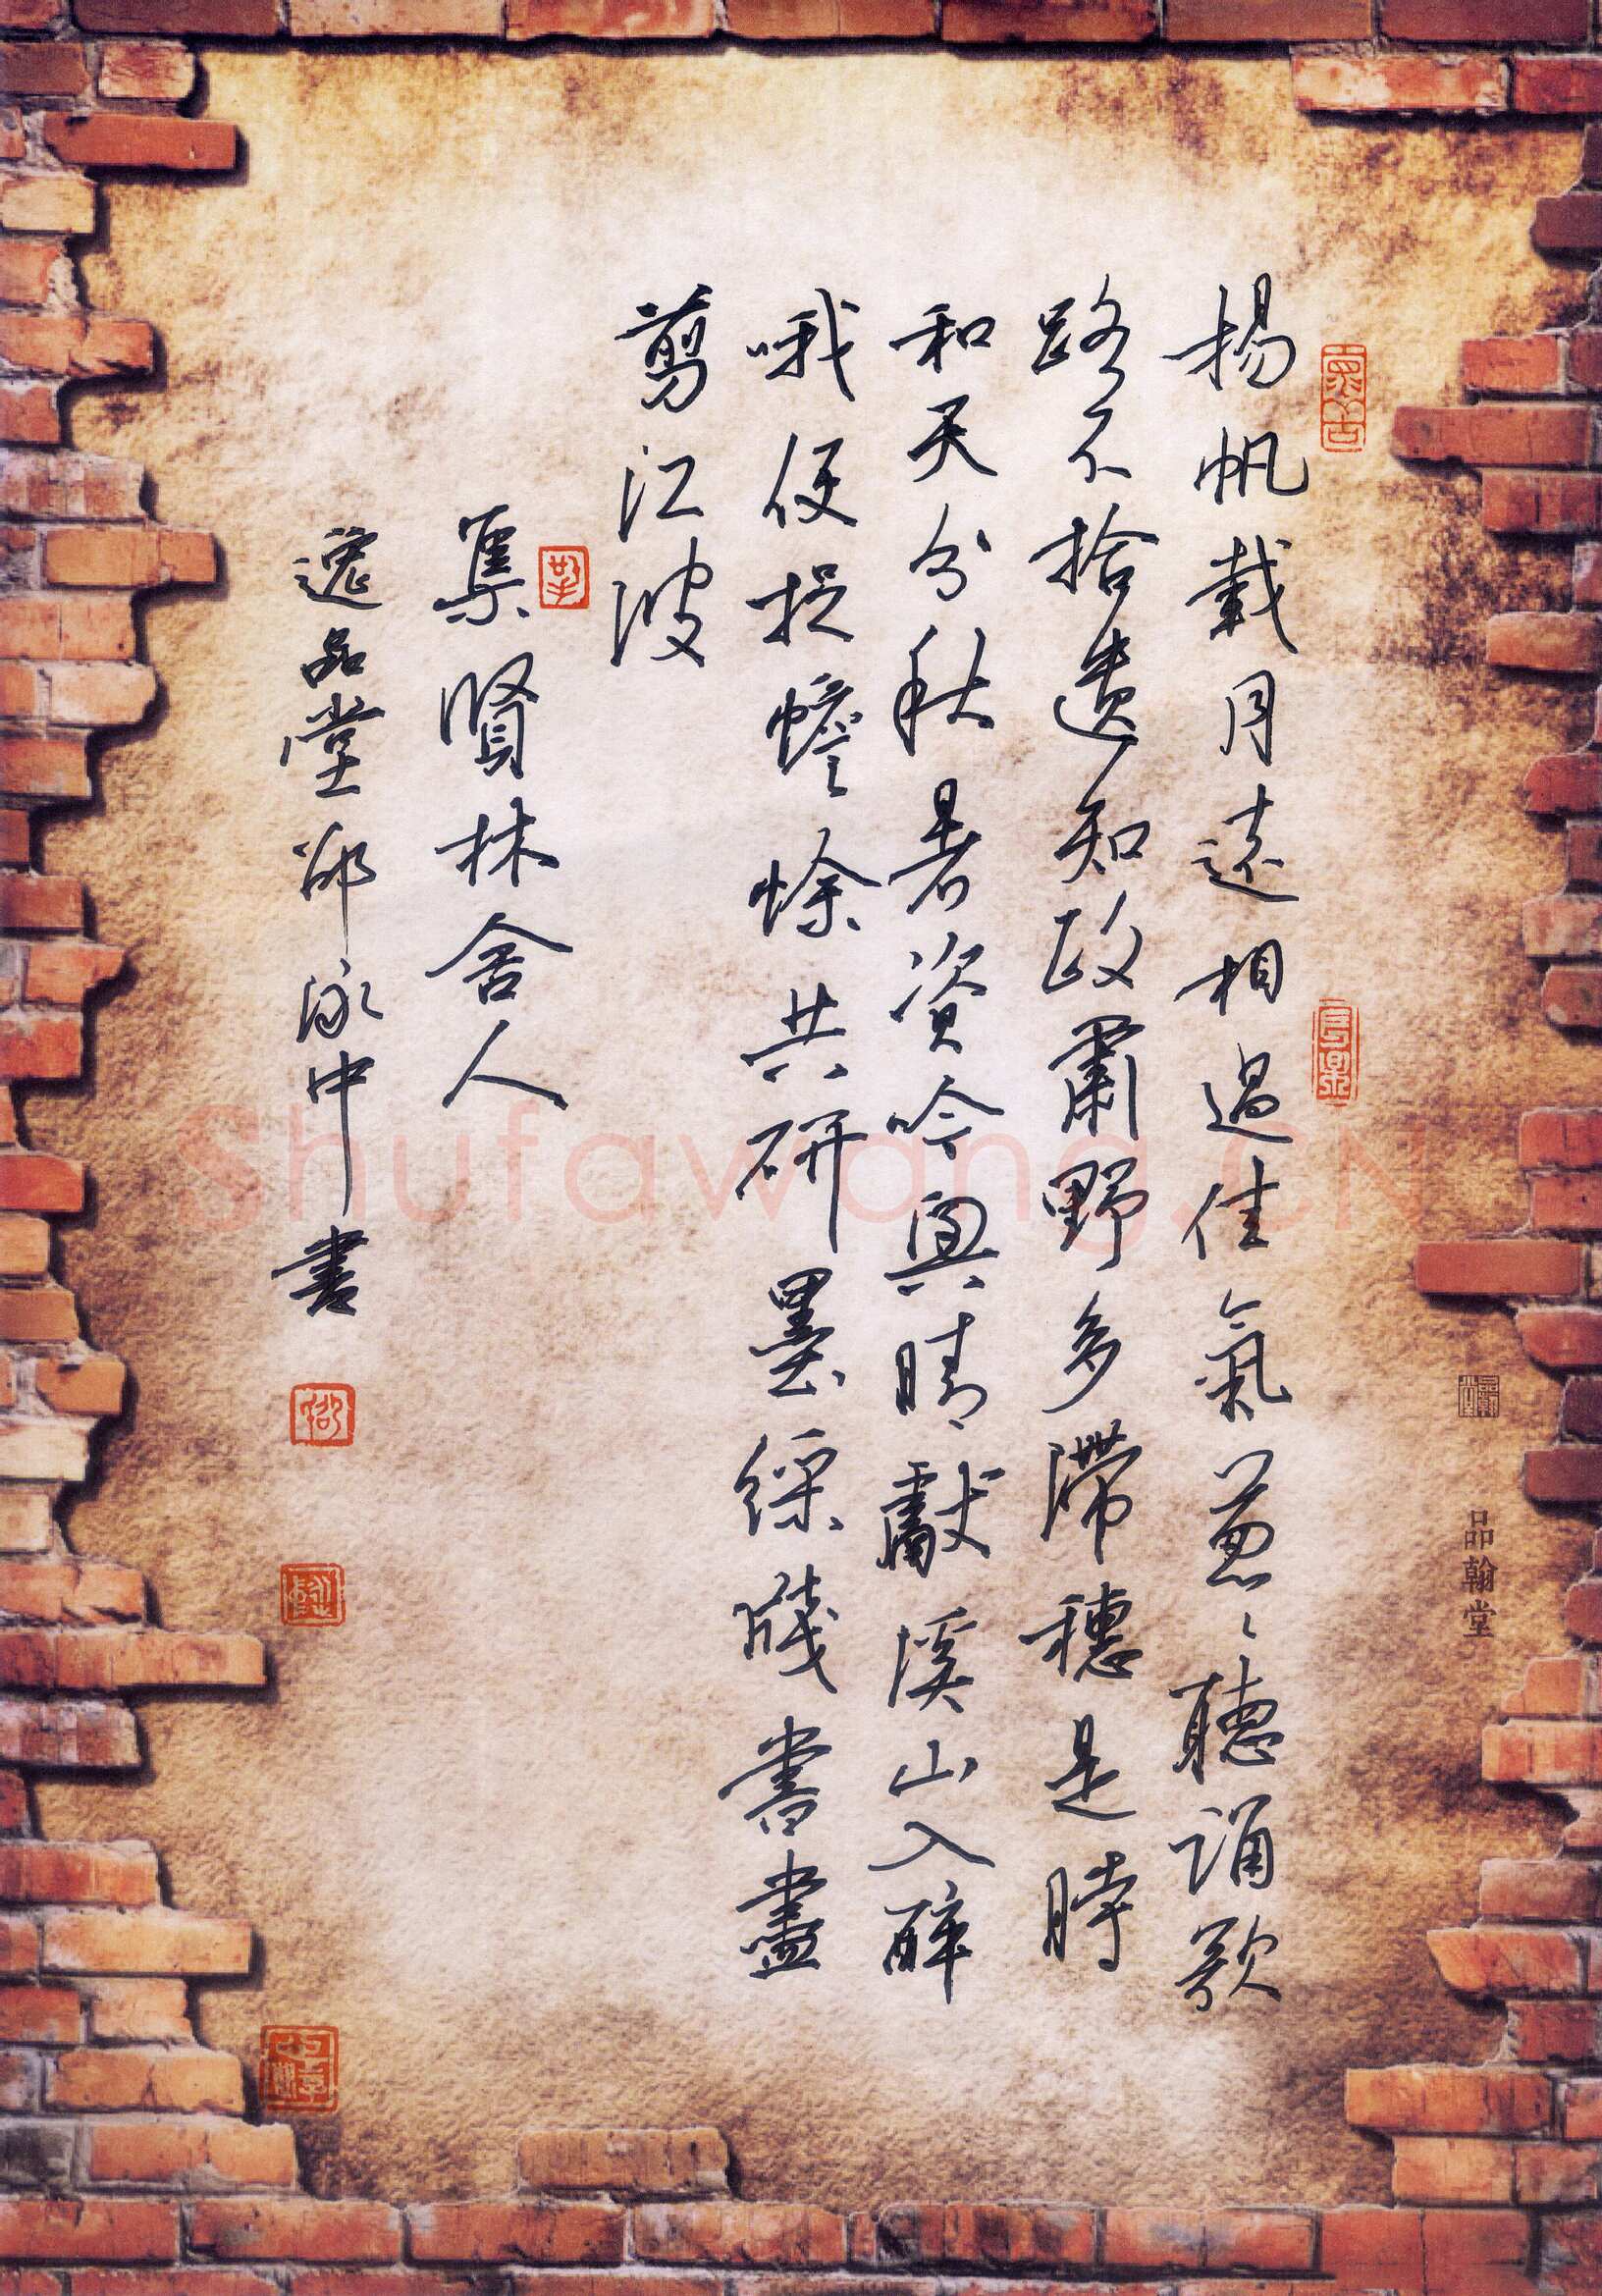 揚帆載月遠相過佳氣蔥〻聽誦歌
路不拾遺知政肅野多滯穗是時
和天分秋暑資吟興晴獻溪山入醉
哦便捉蟾蜍共研墨綵牋書盡
剪江波
集賢林舍人
逸品堂邵泳中書
品翰堂
shufawang.CN